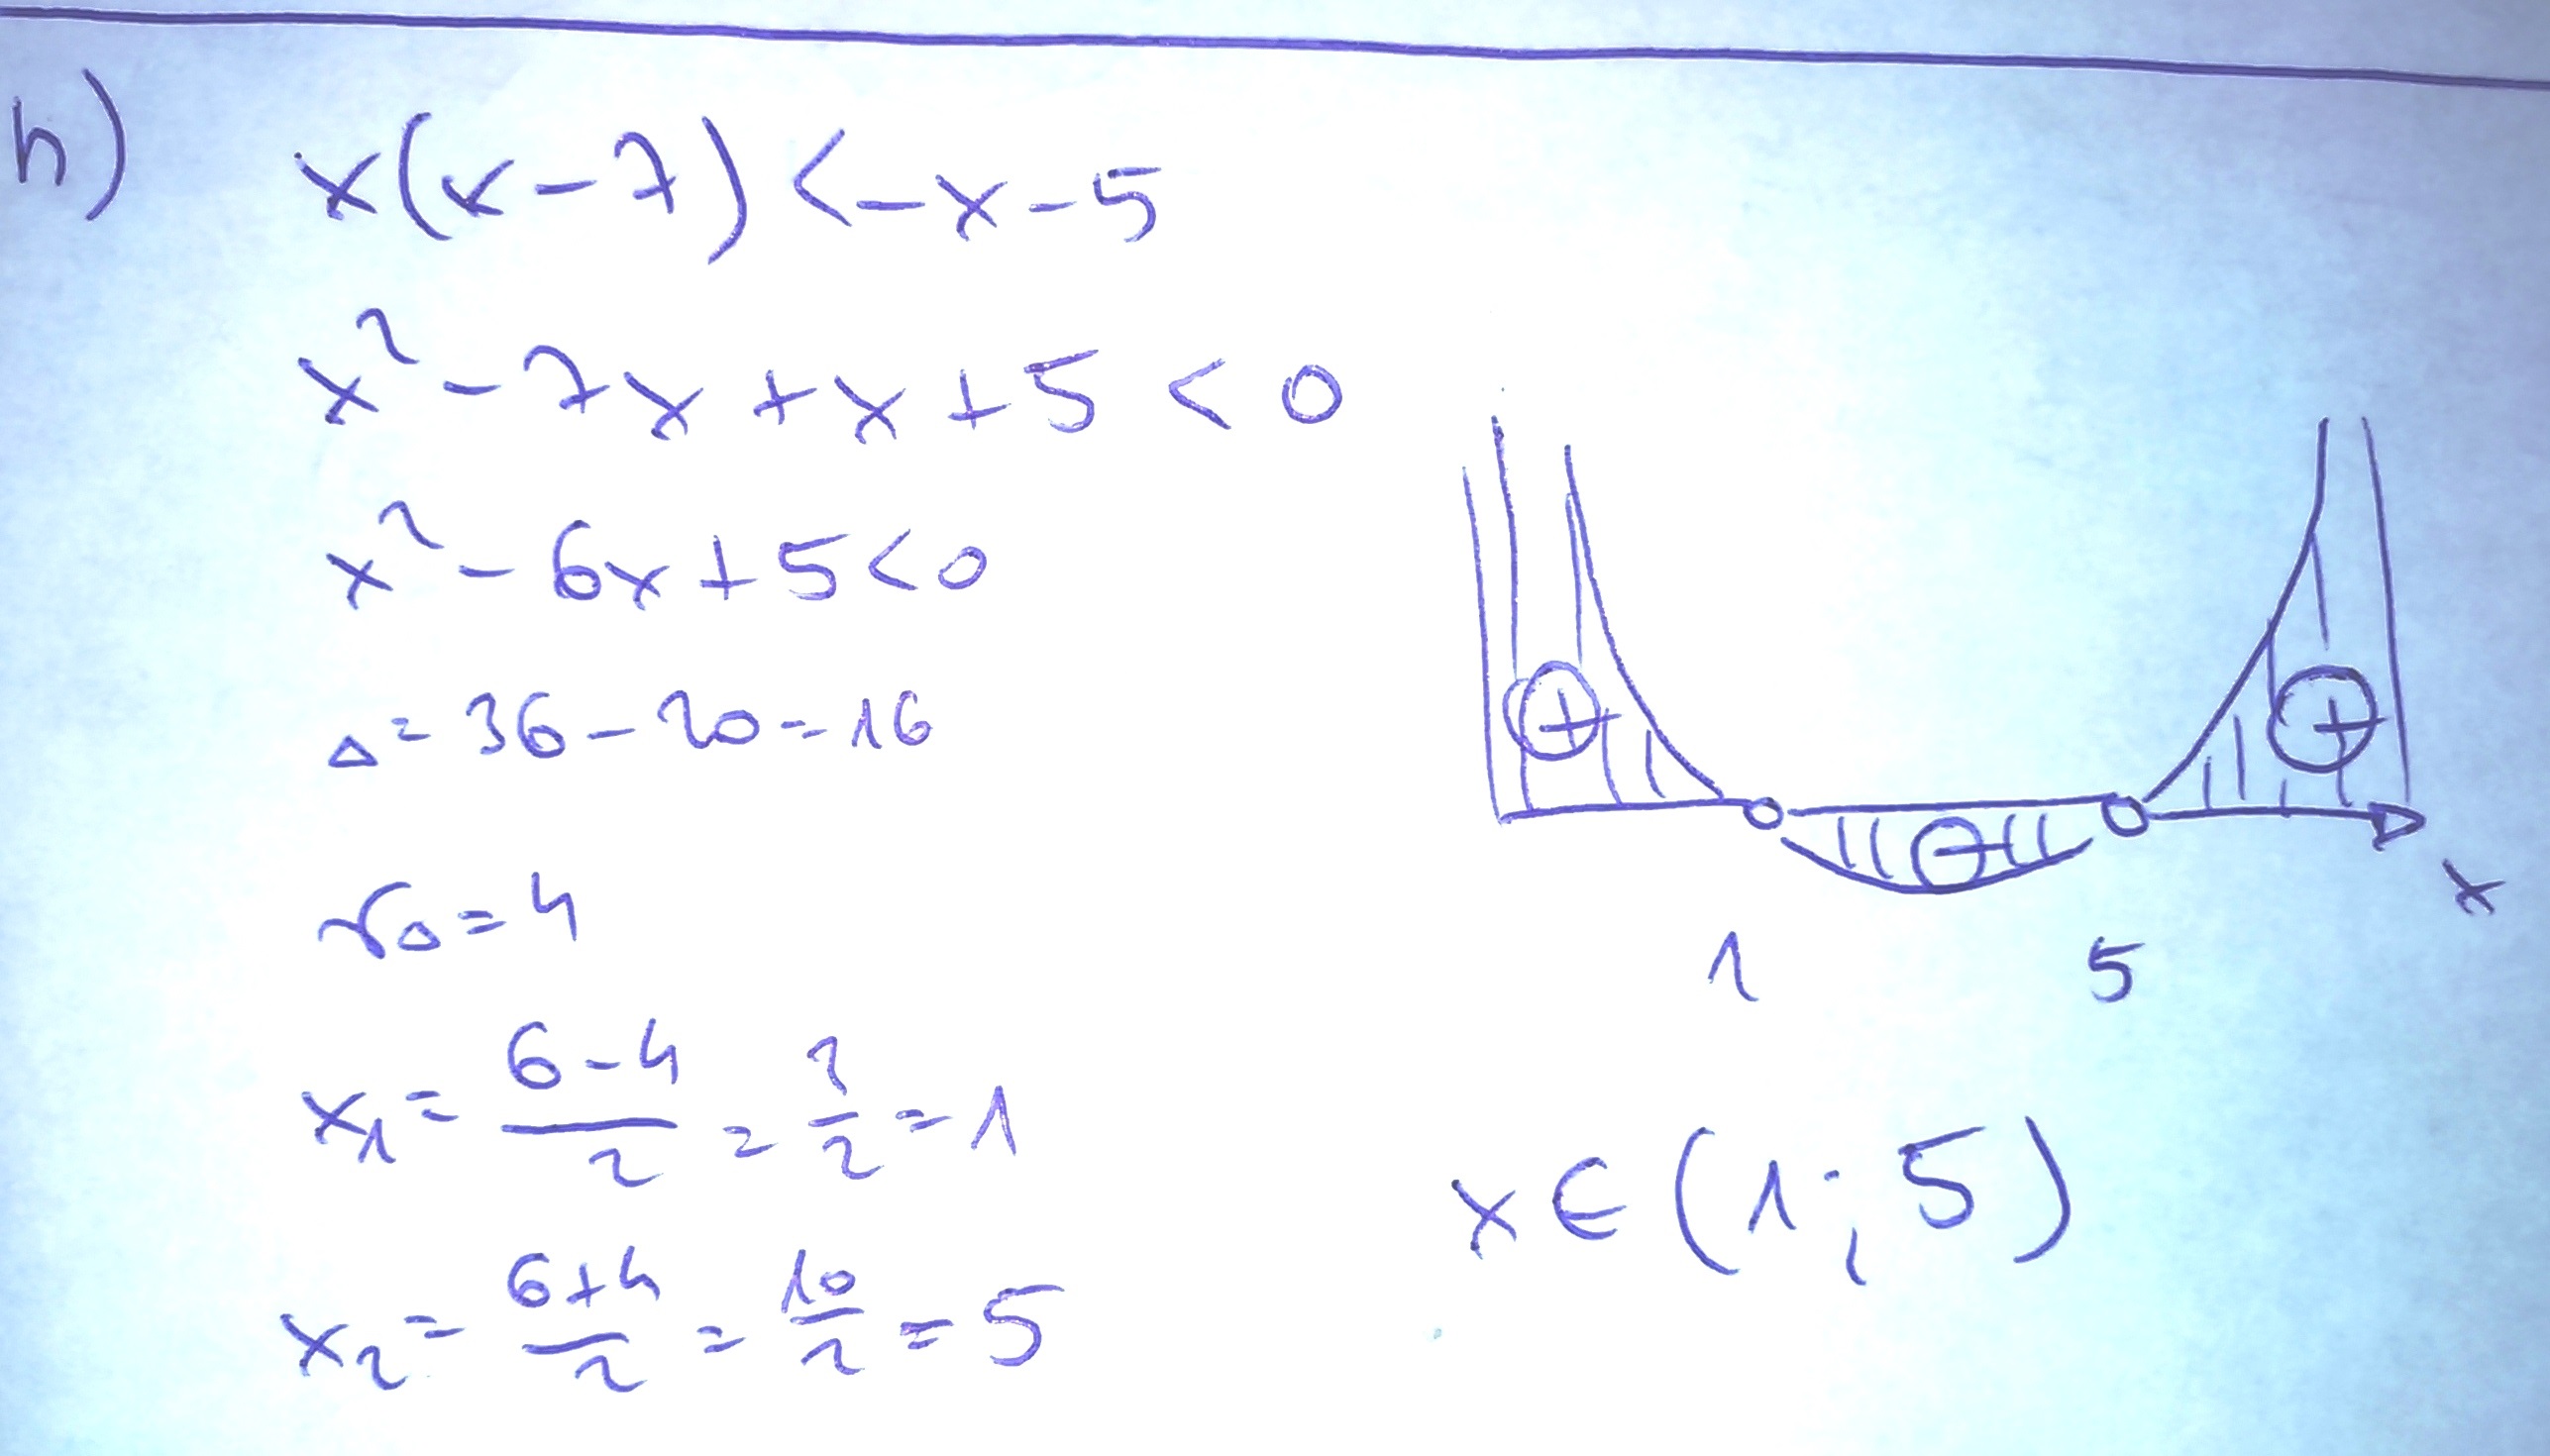 h) x(x-7)<-x-5
x²-7x+x+5<0
x²-6x+5<0
△=36-20=16
√△=4
x₁=\frac{6-4}{2}=\frac{2}{2}=1
x₂=\frac{6+4}{2}=\frac{10}{2}=5
+ - +
x
1 5
x∈(1;5)